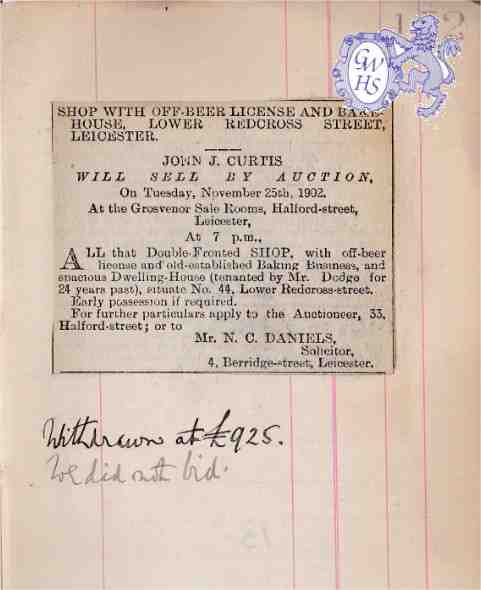 152
GWHS
SHOP WITH OFF-BEER LICENSE AND BAKE-
HOUSE, LOWER REDCROSS STREET,
LEICESTER.
JOHN J. CURTIS
WILL SELL BY AUCTION,
On Tuesday, November 25th, 1902.
At the Grosvenor Sale Rooms, Halford-street,
Leicester,
At 7 p.m.,
ALL that Double-Fronted SHOP, with off-beer
license and old-established Baking Business, and
spacious Dwelling-House (tenanted by Mr. Dodge for
24 years past), situate No. 44, Lower Redcross-street.
Early possession if required.
For further particulars apply to the Auctioneer, 33,
Halford-street; or to
Mr. N. C. DANIELS,
Solicitor,
4, Berridge-street, Leicester.
Withdrawn at £925.
We did not bid.